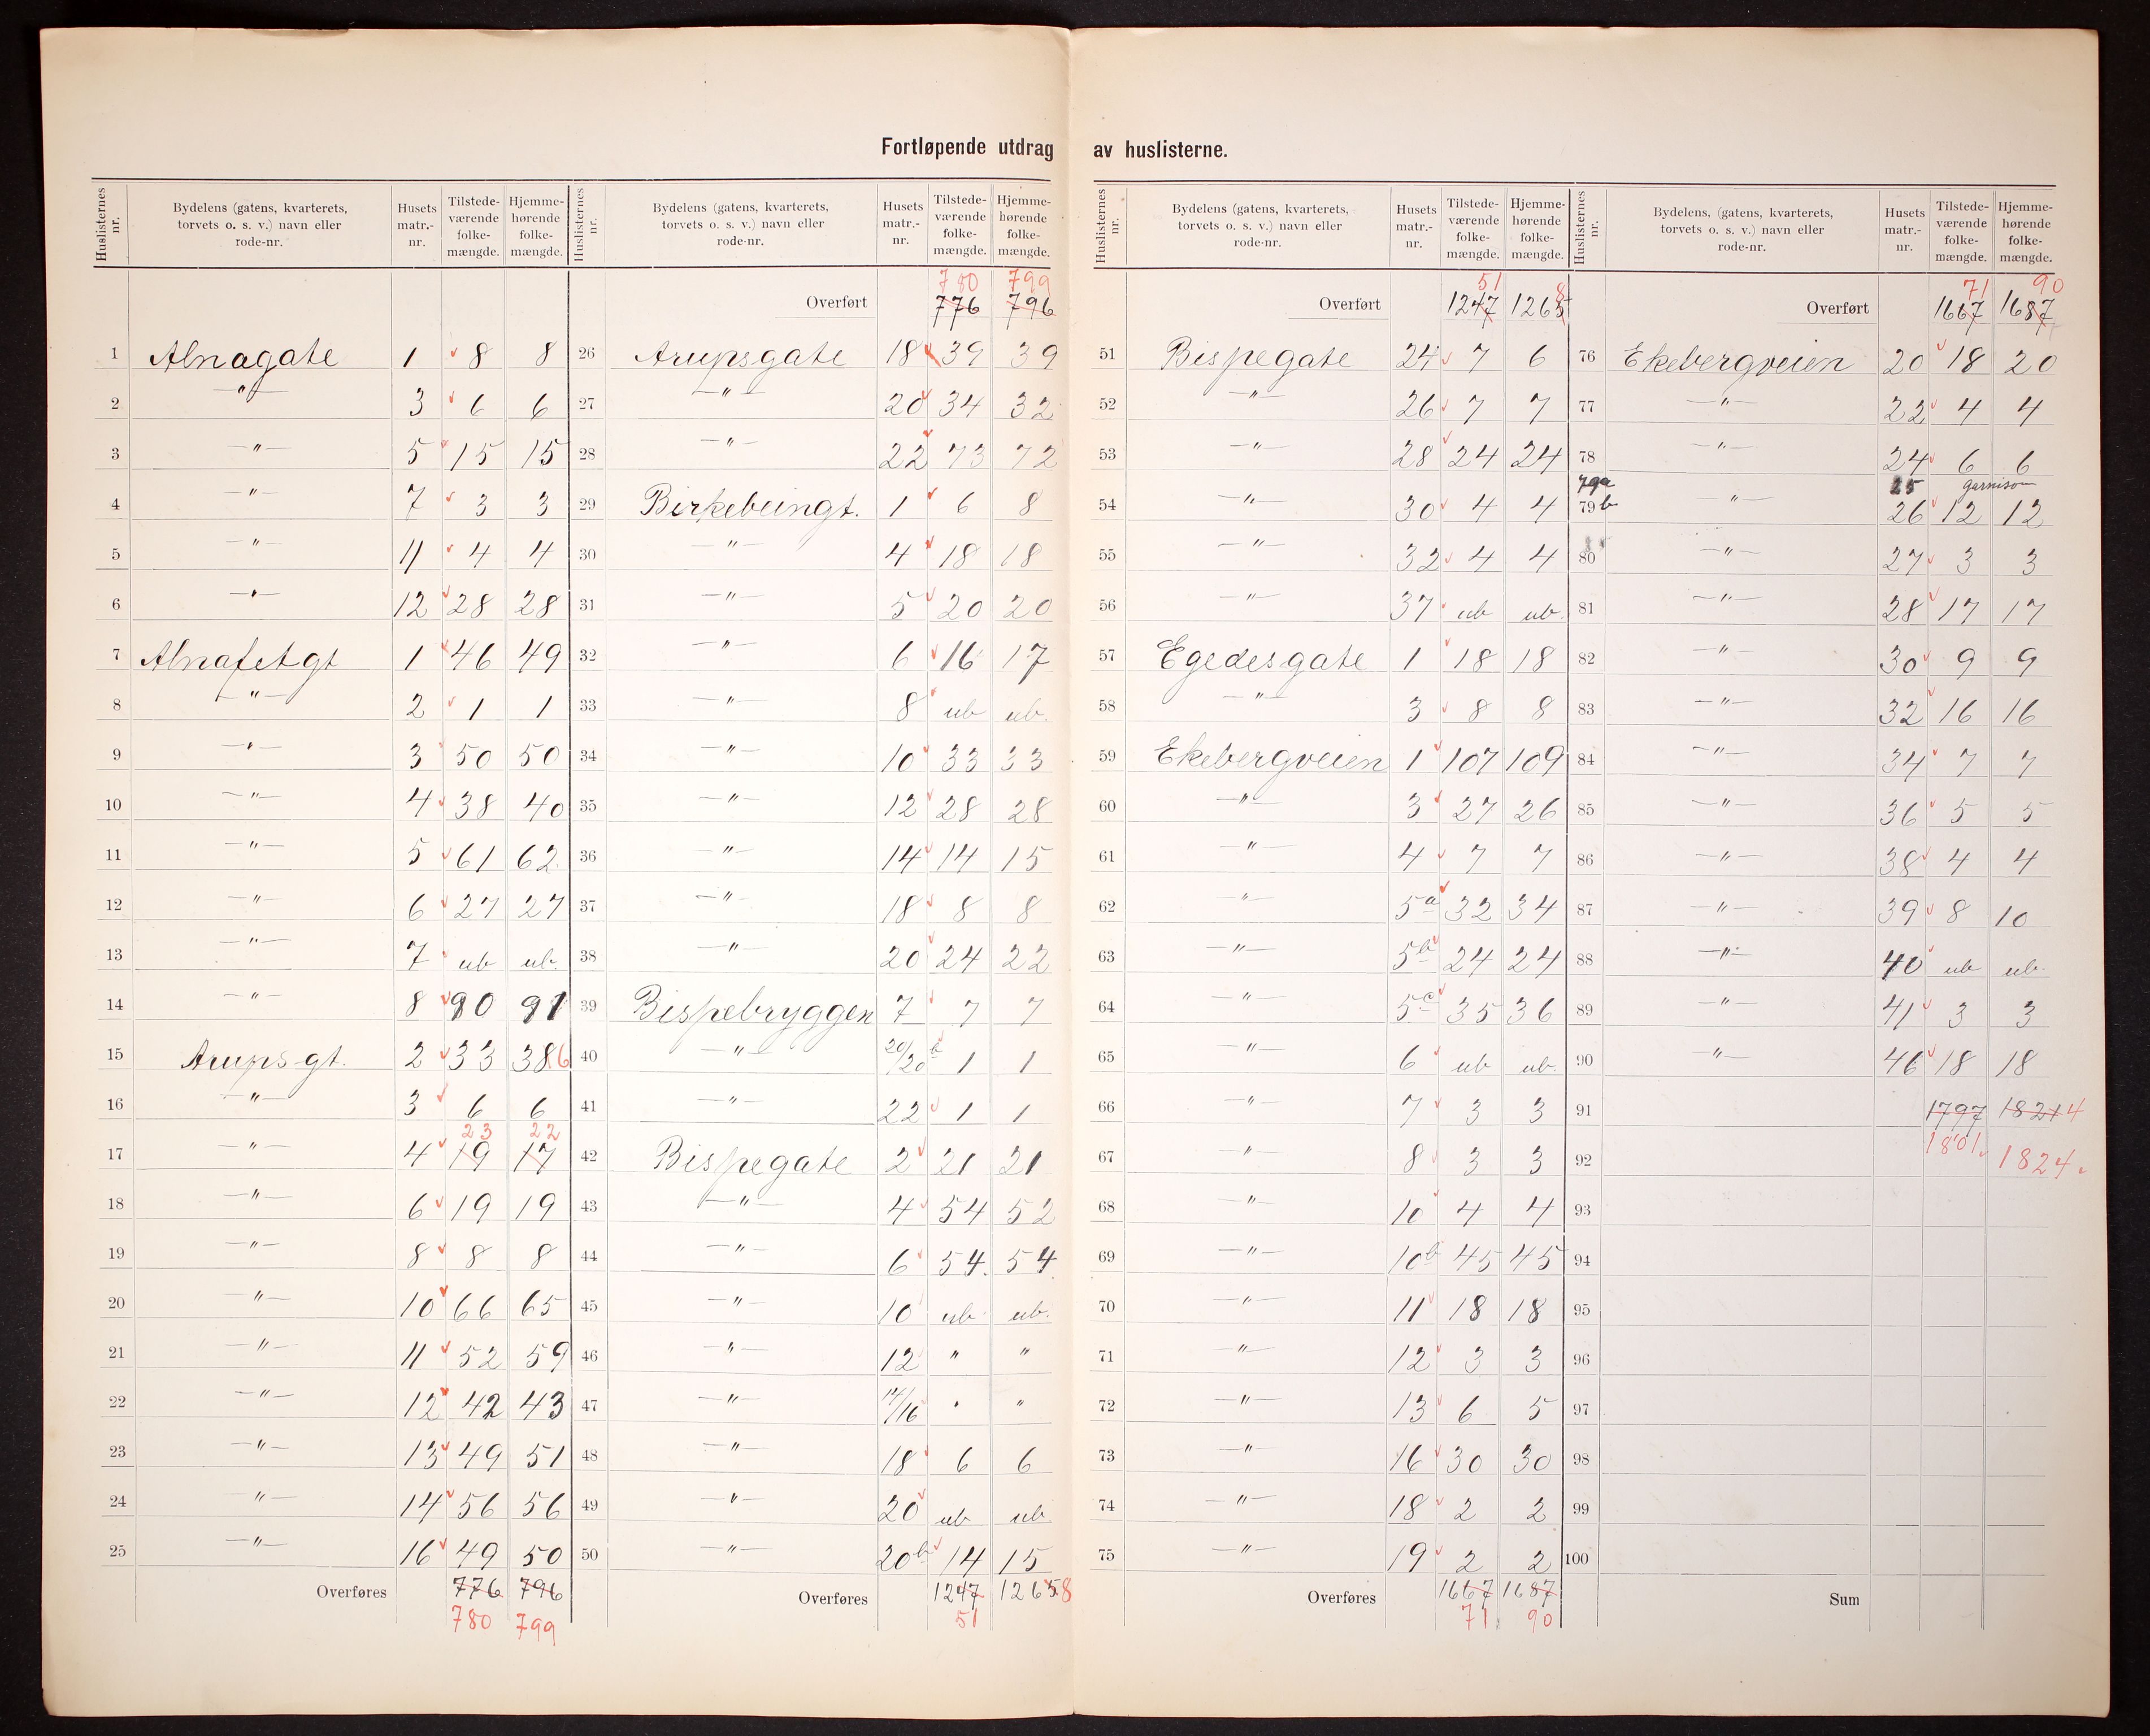 Fortløpende utdrag av huslisterne.
Huslisternes nr. | Bydelens (gatens, kvarterets, torvets o. s. v.) navn eller rode-nr. | Husets matr.-nr. | Tilstede-værende folke-mængde. | Hjemme-hørende folke-mængde.
1 Alnagate 1 8 8
2 —"— 3 6 6
3 —"— 5 15 15
4 —"— 7 3 3
5 —"— 11 4 4
6 —"— 12 28 28
7 Alnafetgt 1 46 49
8 —"— 2 1 1
9 —"— 3 50 50
10 —"— 4 38 40
11 —"— 5 61 62
12 —"— 6 27 27
13 —"— 7 ub ub.
14 —"— 8 90 91
15 Arups-gt. 2 33 38 6
16 —"— 3 6 6
23 22
17 —"— 4 19 17
18 —"— 6 19 19
19 —"— 8 8 8
20 —"— 10 66 65
21 —"— 11 52 59
22 —"— 12 42 43
23 —"— 13 49 51
24 —"— 14 56 56
25 —"— 16 49 50
Overføres 776 796
780 799
Huslisternes nr. | Bydelens (gatens, kvarterets, torvets o. s. v.) navn eller rode-nr. | Husets matr.-nr. | Tilstede-værende folke-mængde. | Hjemme-hørende folke-mængde.
780 799
Overført 776 796
26 Arupsgate 18 39 39
27 —"— 20 34 32
28 —"— 22 73 72
29 Birkebeingt. 1 6 8
30 —"— 4 18 18
31 —"— 5 20 20
32 —"— 6 16 17
33 —"— 8 ub ub.
34 —"— 10 33 33
35 —"— 12 28 28
36 —"— 14 14 15
37 —"— 18 8 8
38 —"— 20 24 22
39 Bispebryggen 7 7 7
40 —"— 20/20b 1 1
41 —"— 22 1 1
42 Bispegate 2 21 21
43 —"— 4 54 52
44 —"— 6 54. 54
45 —"— 10 ub. ub.
46 —"— 12 " "
47 —"— 14/16 " "
48 —"— 18 6 6
49 —"— 20 ub ub.
50 —"— 20b 14 15
Overføres 1247 1265 8
51
Huslisternes nr. | Bydelens (gatens, kvarterets, torvets o. s. v.) navn eller rode-nr. | Husets matr.-nr. | Tilstede-værende folke-mængde. | Hjemme-hørende folke-mængde.
51 8
Overført 1247 1265
51 Bispegate 24 7 6
52 —"— 26 7 7
53 —"— 28 24 24
54 —"— 30 4 4
55 —"— 32 4 4
56 —"— 37 ub ub.
57 Egedesgate 1 18 18
58 —"— 3 8 8
59 Ekebergveien 1 107 109
60 —"— 3 27 26
61 —"— 4 7 7
62 —"— 5a 32 34
63 —"— 5b 24 24
64 —"— 5c 35 36
65 —"— 6 ub ub.
66 —"— 7 3 3
67 —"— 8 3 3
68 —"— 10 4 4
69 —"— 10b 45 45
70 —"— 11 18 18
71 —"— 12 3 3
72 —"— 13 6 5
73 —"— 16 30 30
74 —"— 18 2 2
75 —"— 19 2 2
Overføres 1667 1687
71 90
Huslisternes nr. | Bydelens, (gatens, kvarterets, torvets o. s. v.) navn eller rode-nr. | Husets matr.-nr. | Tilstede-værende folke-mængde. | Hjemme-hørende folke-mængde.
71 90
Overført 1667 1687
76 Ekebergveien 20 18 20
77 —"— 22 4 4
78 —"— 24 6 6
79a 25 garnison
79 b —"— 26 12 12
80 —"— 27 3 3
81 —"— 28 17 17
82 —"— 30 9 9
83 —"— 32 16 16
84 —"— 34 7 7
85 —"— 36 5 5
86 —"— 38 4 4
87 —"— 39 8 10
88 —"— 40 ub ub.
89 —"— 41 3 3
90 —"— 46 18 18
91 1797 1821 4
92 1801 1824
93
94
95
96
97
98
99
100
Sum